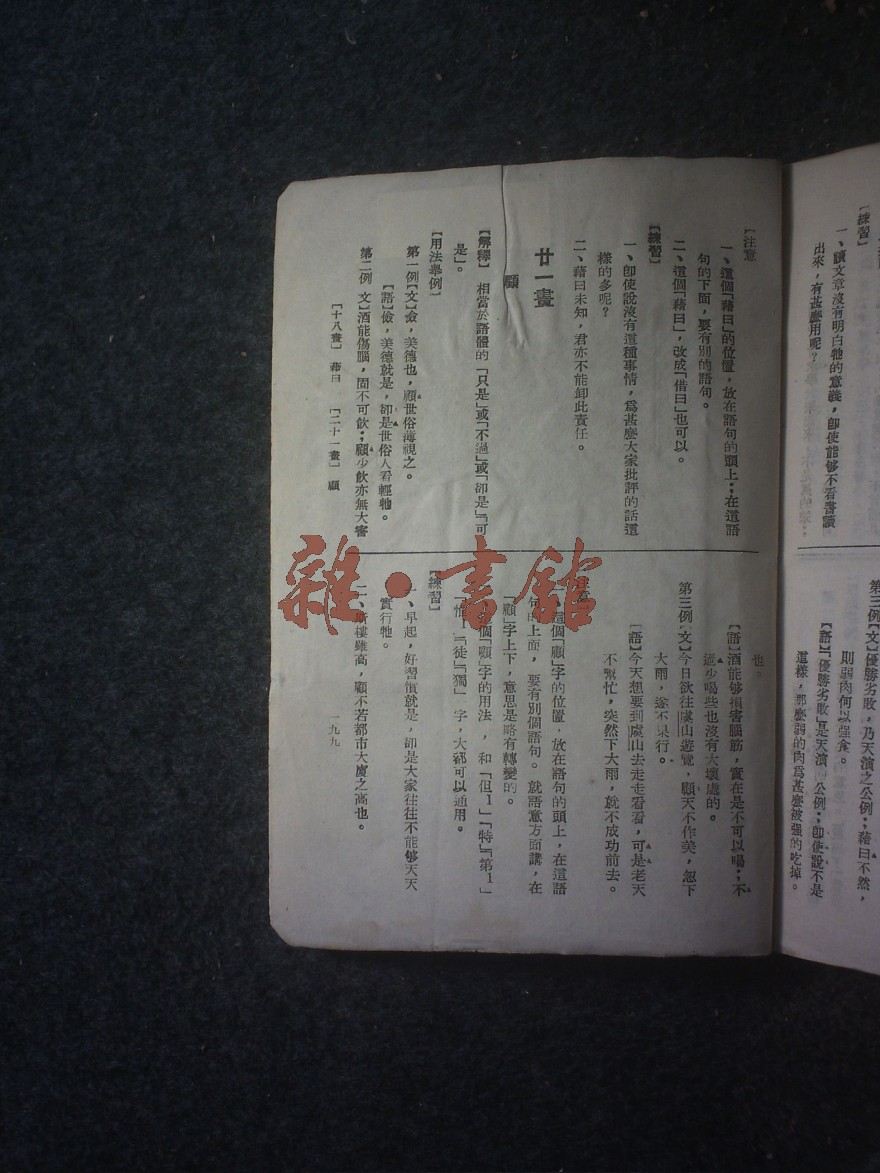 【練習】
一、讀文章沒有明白牠的意義，卽使能够不看書讀
出來，有甚麼用呢？
第三例【文】優勝劣敗，乃天演之公例；藉曰不然，
則弱肉何以强食。
【語】「優勝劣敗」是天演 公例；卽使說不是
這樣，那麼弱的肉爲甚麼被强的吃掉。
【注意
一、這個「藉曰」的位置，放在語句的頭上；在這語
句的下面，要有別的語句。
二、這個「藉曰」，改成「借曰」也可以。
【練習】
一、卽使說沒有這種事情，爲甚麼大家批評的話這
樣的多呢？
二、藉曰未知，君亦不能卸此責任。
廿一畫
顧
【解釋】 相當於語體的「只是」或「不過」或「卻是」「可
是」。
【用法舉例】
第一例【文】儉，美德也，顧世俗薄視之。
【語】儉，美德就是，卻是世俗人看輕牠。
第二例 文】酒能傷腦，固不可飲；顧少飲亦無大害
【十八畫】 藉曰 【二十一畫】 顧
也。
【語】酒能够損害腦筋，實在是不可以喝；不
過少喝些也沒有大壞處的。
第三例【文】今日欲往虞山遊覽，顧天不作美，忽下
大雨，遂不果行。
【語】今天想要到虞山去走走看看，可是老天
不幫忙，突然下大雨，就不成功前去。
這個「顧」字的位置，放在語句的頭上，在這語
句的上面，要有別個語句。就語意方面講，在
「顧」字上下，意思是略有轉變的。
個「顧」字的用法 ，和「但1」「特」「第1」
「惟1」「徒」「獨」 字，大都可以通用。
【練習】
一、早起，好習慣就是，卻是大家往往不能够天天
實行牠。
二、 樓雖高，顧不若都市大廈之高也。
一九九
雜·書館